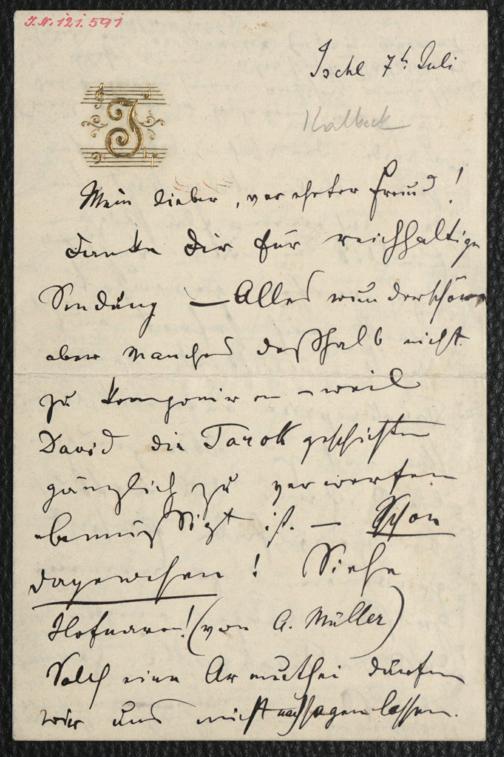 I.N. 121.591
Ischl 7t Juli
Kalbeck
Mein lieber, verehrter Freund!
Danke Dir für reichhaltige
Sendung — Alles wunderschön
aber manches deßhalb nicht
zu komponiren — weil
David die Tarok geschichten
gänzlich zu verwerfen
bemüßigt ist. — Schon
dagewesen! Siehe
Hofnarr! (von A. Müller)
Solch eine Armuthei dürfen
wir uns nicht nachsagen lassen.